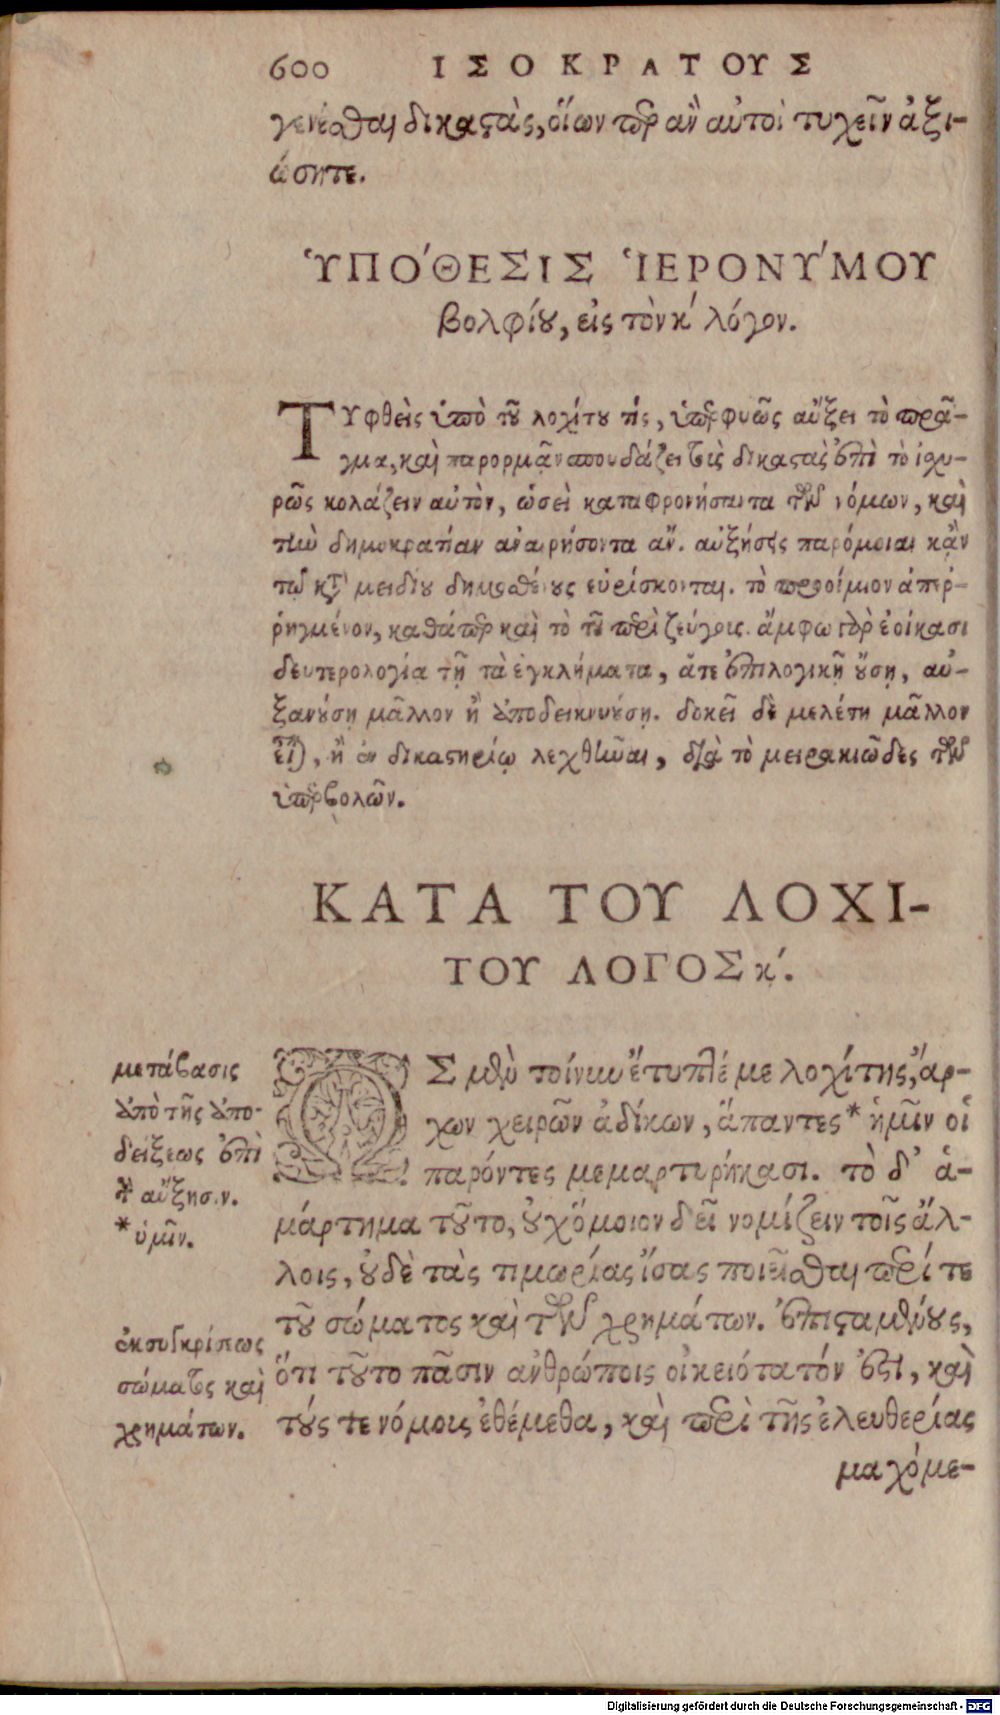 600 ΙΣΟΚΡΑΤΟΥΣ
γενέσθαι δικαστὰς, οἵων περ ἂν αὐτοὶ τυχεῖν ἀξι-
ώσητε.
ὙΠΟ'ΘΕΣΙΣ ἹΕΡΟΝΥ'ΜΟΥ
Βολφίου, εἰς τὸν κʹ λόγον.
Τυφθεὶς ὑπὸ τοῦ λοχίτου τὶς, ὑπερφυῶς αὔξει τὸ πρᾶ-
γμα, καὶ παρορμᾷν σπουδάζει τοὺς δικαστὰς ἐπὶ τὸ ἰσχυ-
ρῶς κολάζειν αὐτὸν, ὡσεὶ καταφρονήσαντα τῶν νόμων, καὶ
τὴν δημοκρατίαν ἀναιρήσοντα ἄν. αὐξήσεις παρόμοιαι κᾂν
τῷ κτ' μειδίου δημοσθένους εὑρίσκονται. τὸ προοίμιον ἀπερ-
ρηγμένον, καθάπερ καὶ τὸ τοῦ περὶ ζεύγους. ἄμφω γὰρ ἐοίκασι
δευτερολογία τῇ τὰ ἐγκλήματα, ἅτε ἐπιλογικῇ οὔσῃ, αὐ-
ξανούσῃ μᾶλλον ἢ ἀποδεικνυούσῃ. δοκεῖ δὲ μελέτη μᾶλλον
εἶναι, ἢ ἐν δικαστηρίῳ λεχθῆναι, διὰ τὸ μειρακιῶδες τῶν
ὑπερβολῶν.
ΚΑΤΑ ΤΟΥ ΛΟΧΙ-
ΤΟΥ ΛΟΓΟΣ κʹ.
μετάβασις
ἀπὸ τῆς ἀπο-
δείξεως ἐπὶ
τὴν αὔξησιν.
* ὑμῖν.
ὩΣ μὲν τοίνυν ἔτυπτέ με λοχίτης, ἄρ-
χων χειρῶν ἀδίκων, ἅπαντες * ἡμῖν οἱ
παρόντες μεμαρτυρήκασι. τὸ δ' ἁ-
μάρτημα τοῦτο, οὐχ ὅμοιον δεῖ νομίζειν τοῖς ἄλ-
λοις, οὐδὲ τὰς τιμωρίας ἴσας ποιεῖσθαι περί τε
τοῦ σώματος καὶ τῶν χρημάτων. ἐπισταμένους,
ὅτι τοῦτο πᾶσιν ἀνθρώποις οἰκειότατόν ἐστι, καὶ
τούς τε νόμους ἐθέμεθα, καὶ περὶ τῆς ἐλευθερίας
ἐκ συγκρίσεως
σώματος καὶ
χρημάτων.
μαχόμε-
Digitalisierung gefördert durch die Deutsche Forschungsgemeinschaft - DFG